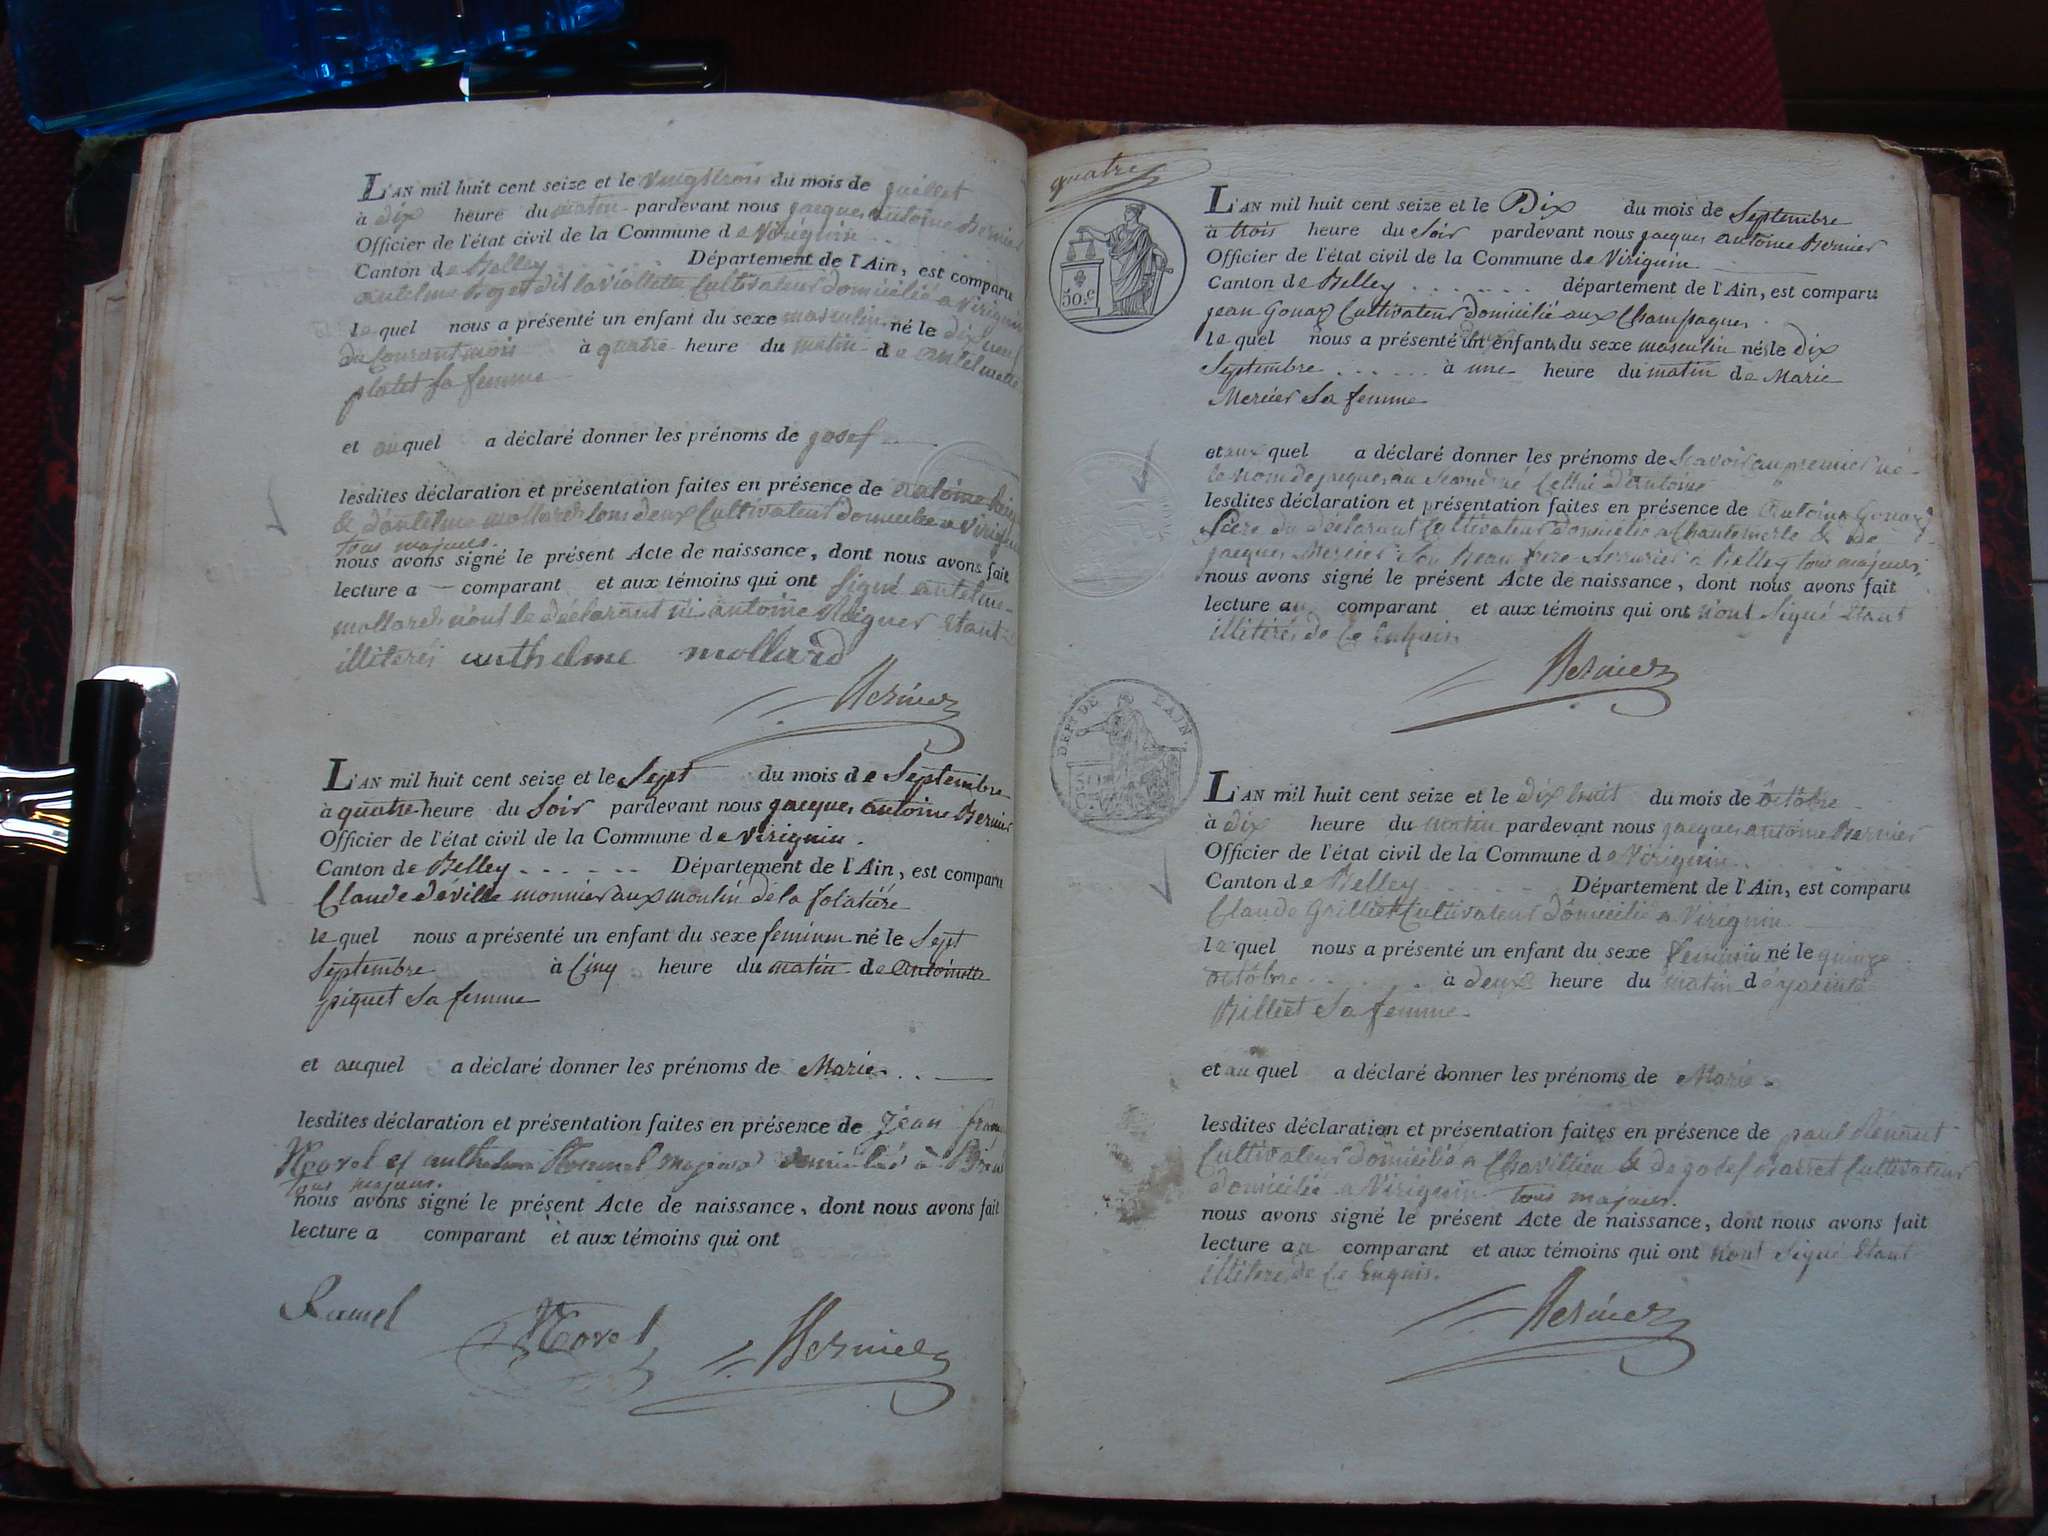 L'AN mil huit cent seize et le vingttrois du mois de juillet
à dix heure du matin pardevant nous jacques antoine Bernier
Officier de l'état civil de la Commune de Virignin
Canton de Belley Département de l'Ain, est comparu
antelme Roger dit la viollette Cultivateur domicilié a Virignin
le quel nous a présenté un enfant du sexe masculin né le dix neuf
du Courant mois à quatre heure du matin de
platet sa femme
et auquel a déclaré donner les prénoms de josef
lesdites déclaration et présentation faites en présence de antoine
& d'antelme mollard tous deux Cultivateur domicilié a Virignin
tous majeurs.
nous avons signé le présent Acte de naissance, dont nous avons fait
lecture a comparant et aux témoins qui ont signé antelme
mollard non le déclarant ni antoine étant
illiterés anthelme mollard
Bernier
L'AN mil huit cent seize et le Sept du mois de Septembre
à quatre heure du Soir pardevant nous jacques antoine Bernier
Officier de l'état civil de la Commune de Virignin.
Canton de Belley . . . . . . Département de l'Ain, est comparu
Claude déville monnier aux moulin de la folatiére
le quel nous a présenté un enfant du sexe feminin né le Sept
Septembre à Cinq heure du matin de antoinette
piquet Sa femme
et auquel a déclaré donner les prénoms de Marie. . .
lesdites déclaration et présentation faites en présence de jean
Novel et anthelme majeurs domiciliés à
tous majeurs.
nous avons signé le présent Acte de naissance, dont nous avons fait
lecture a comparant et aux témoins qui ont
Ramel Novel Bernier
quatre
50.c
L'AN mil huit cent seize et le Dix du mois de Septembre
à trois heure du Soir pardevant nous jacques antoine Bernier
Officier de l'état civil de la Commune de Virignin
Canton de Belley . . . . . . département de l'Ain, est comparu
jean Gonaz Cultivateur domicilié aux Champagnes
le quel nous a présenté un deux enfant du sexe masculin nés le dix
Septembre . . . . . . à une heure du matin de Marie
Mercier Sa femme
et aux quel a déclaré donner les prénoms de Scavoir au premier né
le nom de jaques au Second né Cellui d'antoine
lesdites déclaration et présentation faites en présence de antoine Gonaz
frère du déclarant Cultivateur domicilié a Chantemerle & de
jacques Mercier Son Beau frere Serrurier a Belley tous majeurs
nous avons signé le présent Acte de naissance, dont nous avons fait
lecture au comparant et aux témoins qui ont n'ont Signé Etant
illiterés de Ce Enquis
Bernier
DEPT DE L'AIN
L'AN mil huit cent seize et le dix huit du mois de Octobre
à dix heure du matin pardevant nous jacques antoine Bernier
Officier de l'état civil de la Commune de Virignin
Canton de Belley Département de l'Ain, est comparu
Claude Gaillet Cultivateur domicilié a Virignin
le quel nous a présenté un enfant du sexe feminin né le quinze
octobre à deux heure du matin d'éyacinte
Billiet Sa femme
et au quel a déclaré donner les prénoms de Marie.
lesdites déclaration et présentation faites en présence de paul
Cultivateur domicilié a Chavillieu & de josef Barret Cultivateur
domicilié a Virignin tous majeurs.
nous avons signé le présent Acte de naissance, dont nous avons fait
lecture au comparant et aux témoins qui ont n'ont Signé Etant
illiterés de Ce Enquis.
Bernier